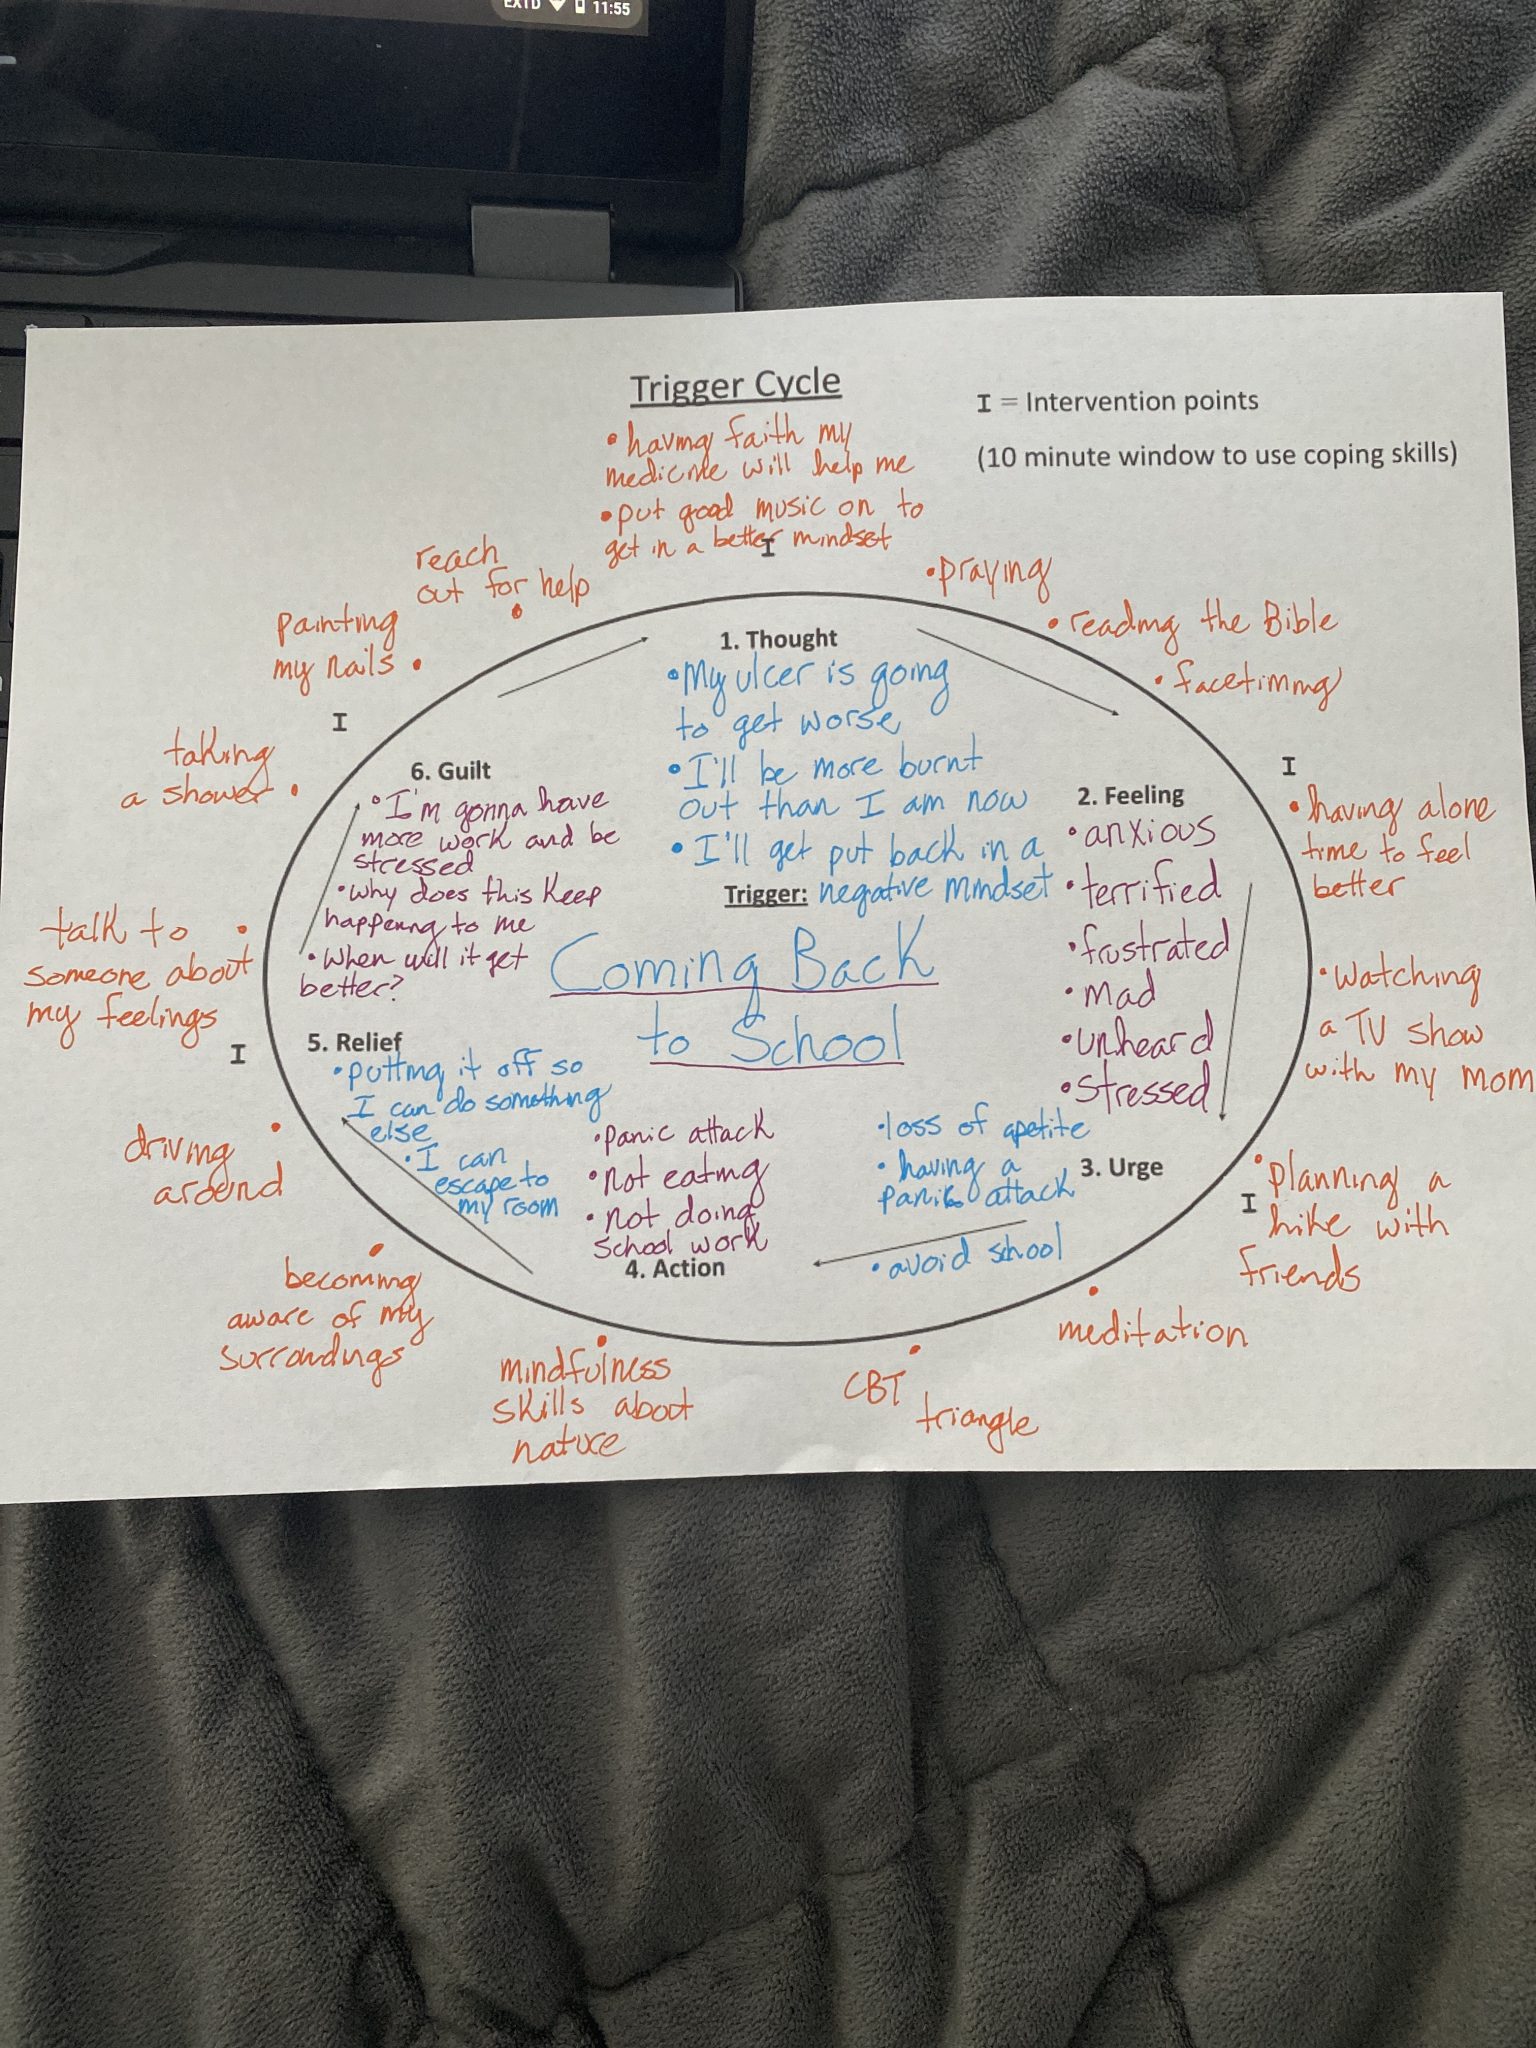 EXTD 11:55
Trigger Cycle
I = Intervention points
(10 minute window to use coping skills)
• having faith my
medicine will help me
• put good music on to
get in a better mindset
I
• praying
• reading the Bible
• facetiming
I
• having alone
time to feel
better
• watching
a TV show
with my mom
I
• planning a
hike with
friends
• meditation
• CBT
triangle
• mindfulness
skills about
nature
• becoming
aware of my
surroundings
• driving
around
I
talk to •
someone about
my feelings
taking
a shower •
I
painting
my nails •
reach
out for help
•
1. Thought
• My ulcer is going
to get worse
• I'll be more burnt
out than I am now
• I'll get put back in a
negative mindset
2. Feeling
• anxious
• terrified
• frustrated
• mad
• unheard
• stressed
3. Urge
• loss of apetite
• having a
panic attack
• avoid school
4. Action
• panic attack
• not eating
• not doing
school work
5. Relief
• putting it off so
I can do something
else
• I can
escape to
my room
6. Guilt
• I'm gonna have
more work and be
stressed
• why does this keep
happening to me
• when will it get
better?
Trigger:
Coming Back
to School